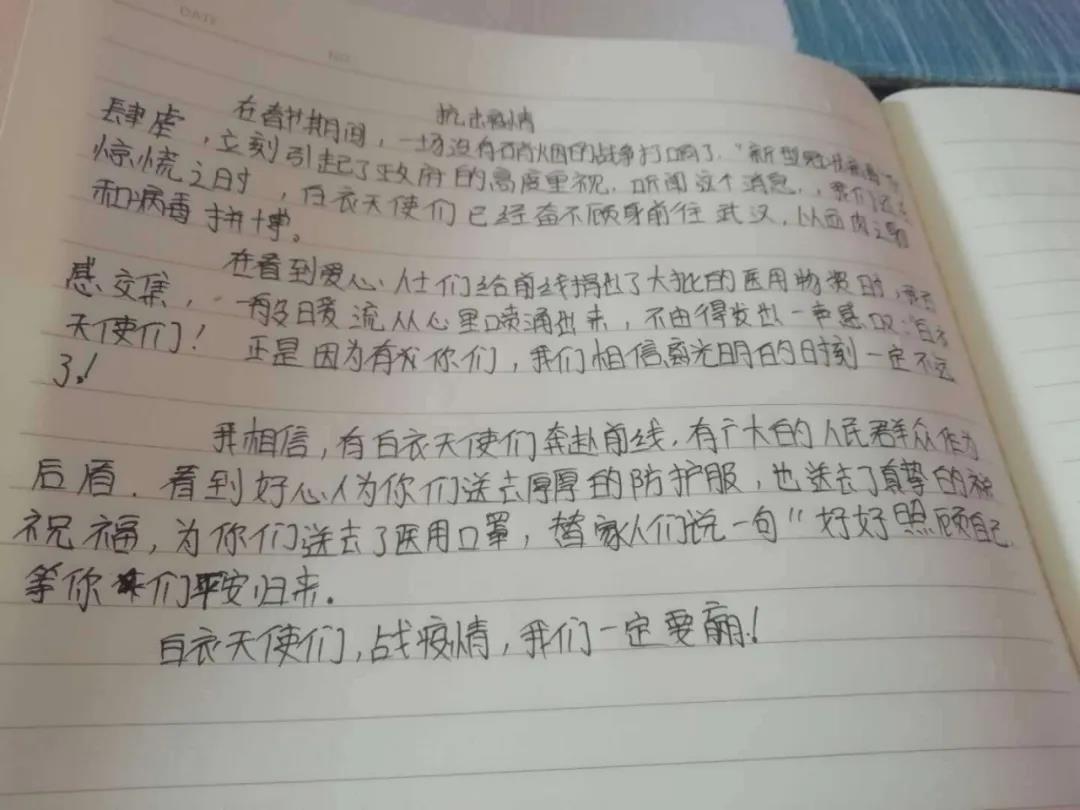 DATE
NO
抗击疫情
在春节期间，一场没有硝烟的战争打响了，"新型冠状病毒"
肆虐，立刻引起了政府的高度重视，听闻这个消息，我们还在
惊慌之时，白衣天使们已经奋不顾身前往武汉，以血肉之躯
和病毒拼博。
在看到爱心人士们给前线捐出了大批的医用物资时，我百
感交集，一股暖流从心里喷涌出来，不由得发出一声感叹：白衣
天使们！正是因为有你们，我们相信离光明的时刻一定不远
了！
我相信，有白衣天使们奔赴前线，有广大的人民群众作为
后盾，看到好心人为你们送去厚厚的防护服，也送去了真挚的
祝福，为你们送去了医用口罩，替家人们说一句"好好照顾自己，
等你们平安归来。
白衣天使们，战疫情，我们一定要赢！